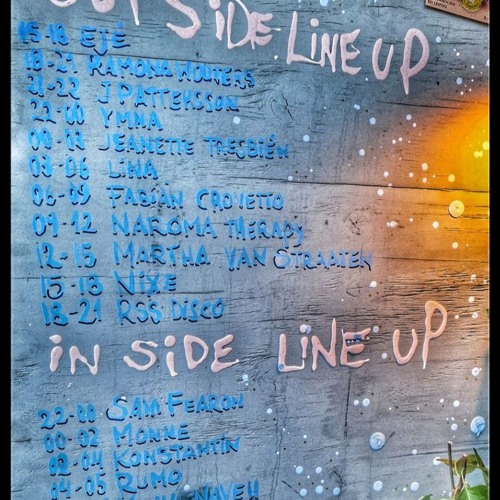 OUTSIDE LINE UP
15-18 EJÉ
18-21 RAMONA WOUTERS
21-22 J PATTERSSON
22-00 YMNA
00-03 JEANETTE TRESBIÉN
03-06 LINA
06-09 FABIÁN CROVETTO
09-12 NAROMA THERAPY
12-15 MARTHA VAN STRAATEN
15-18 NIXE
18-21 RSS DISCO
iN SiDE LiNE UP
22-00 SAVA FEARON
00-02 MONKE
02-04 KONSTANTIN
04-05 RUMO